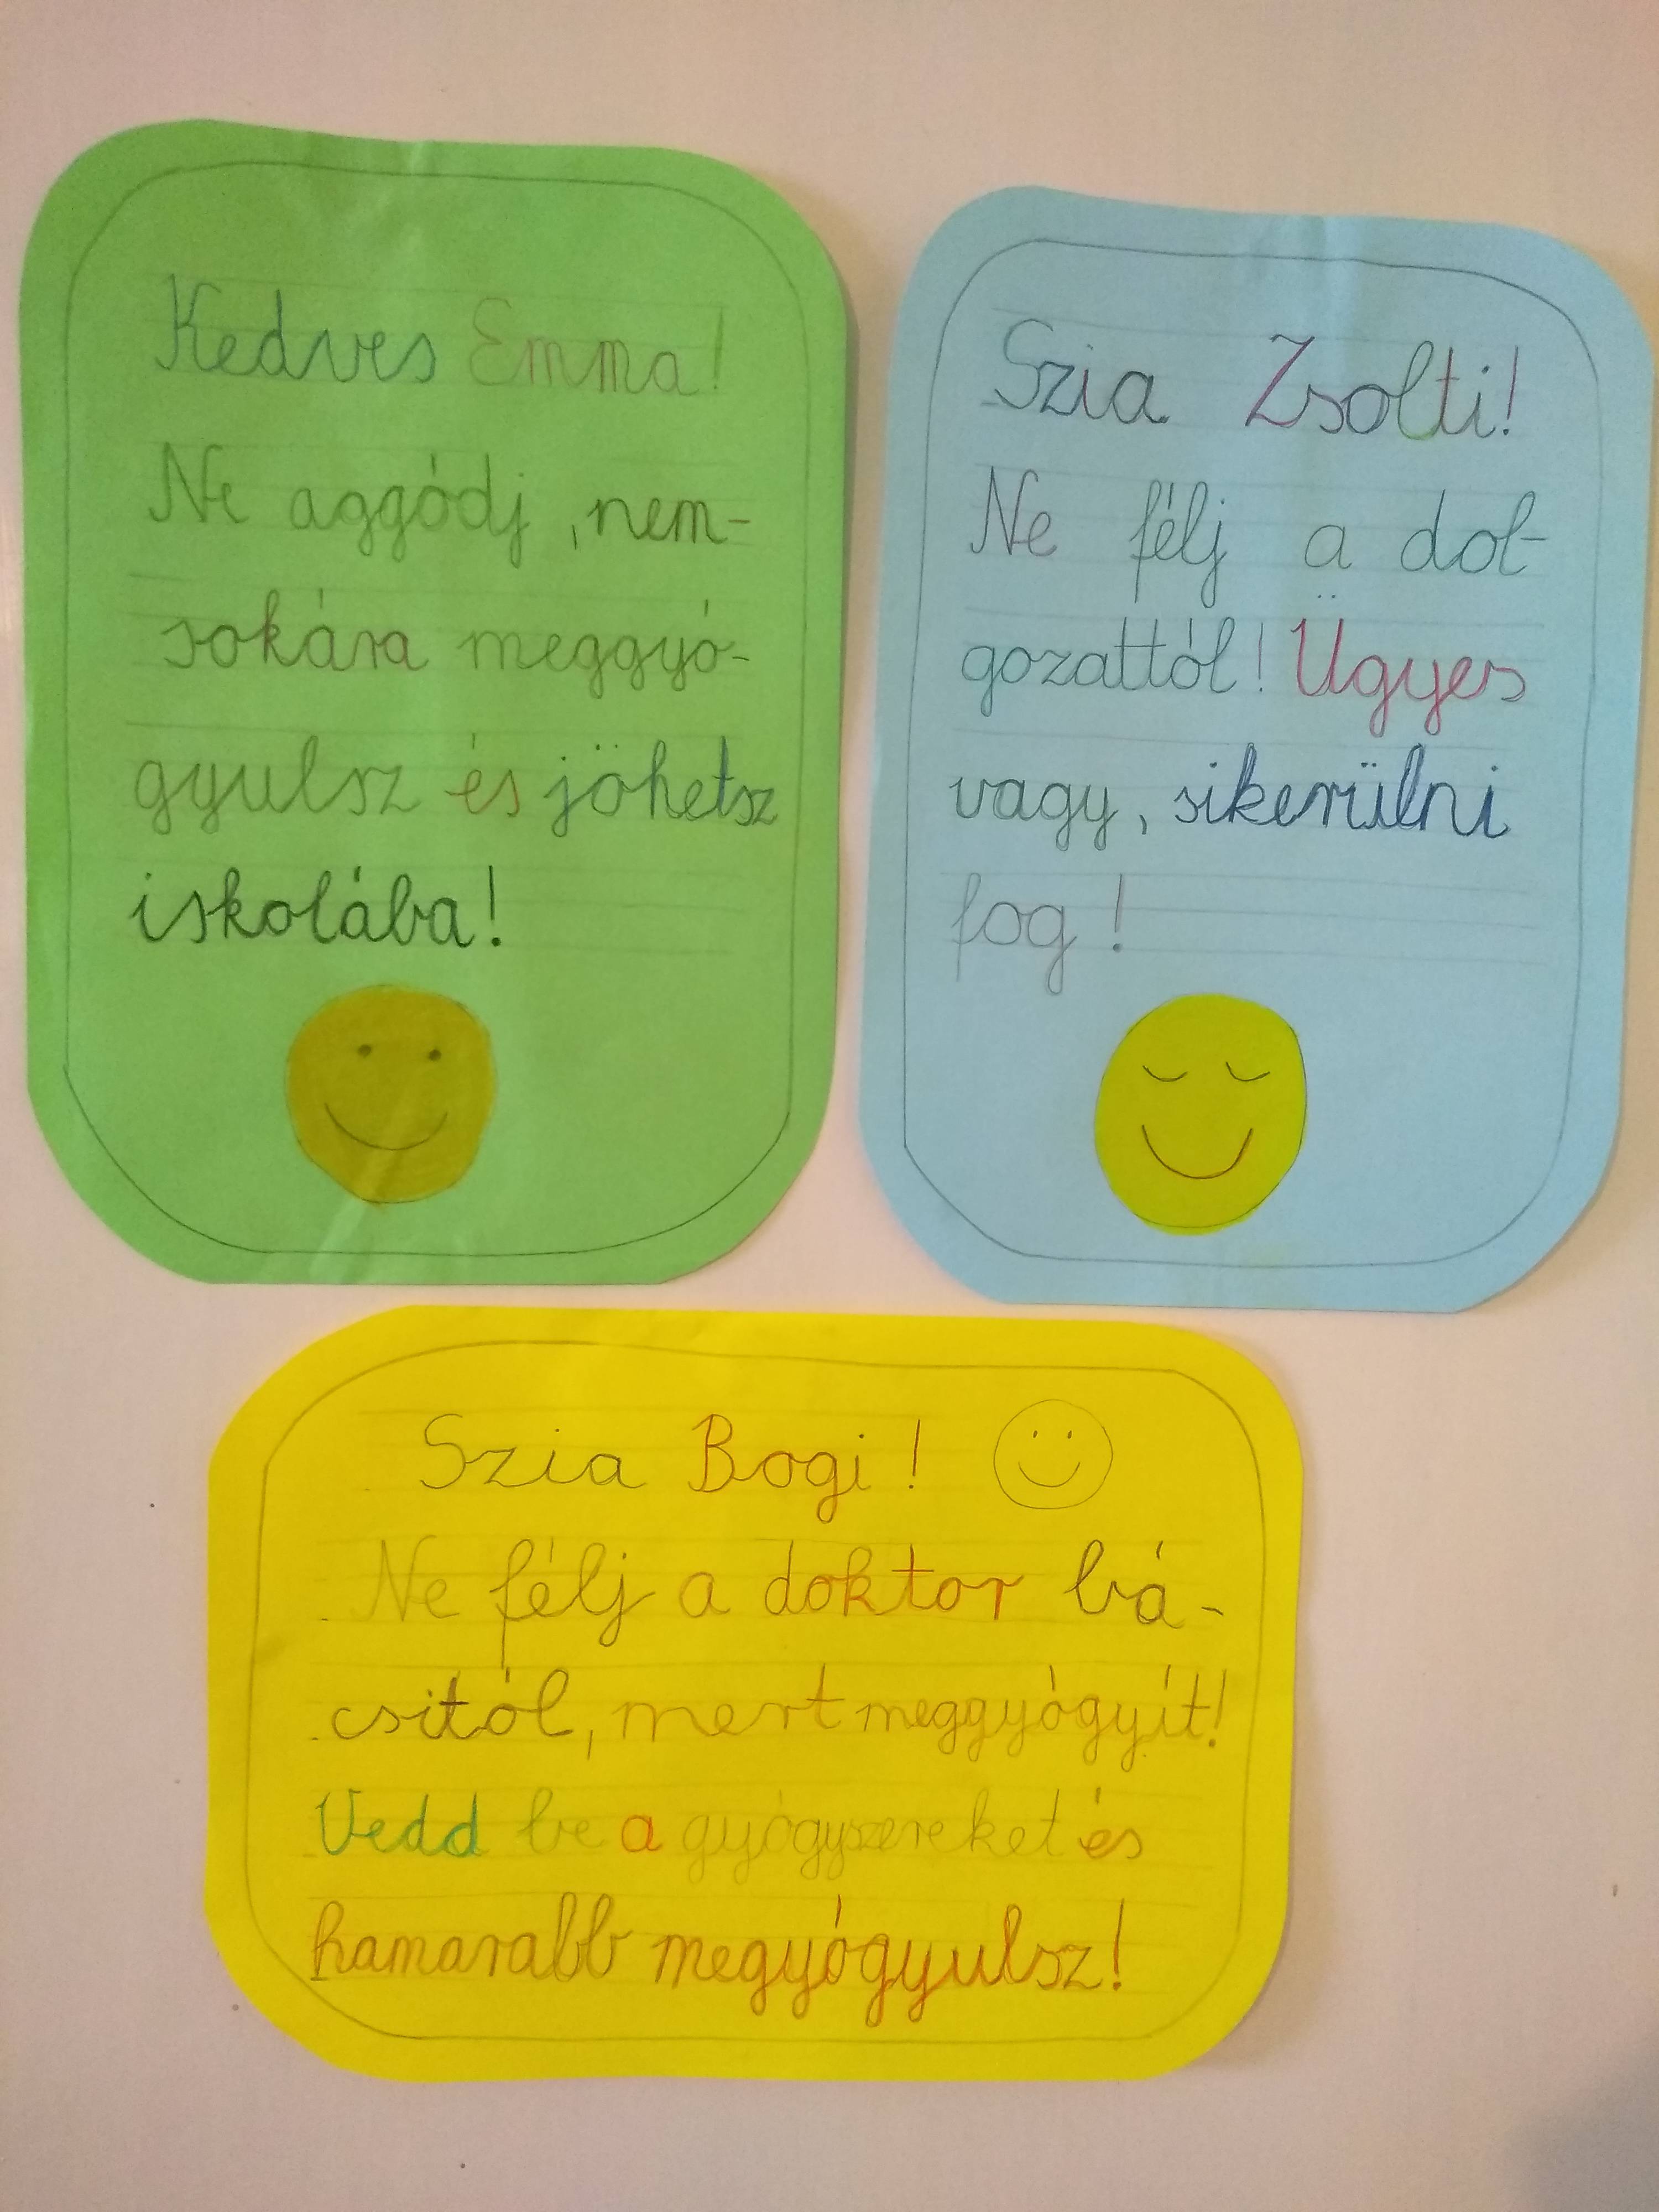 Kedves Emma!
Ne aggódj, nem-
sokára meggyó-
gyulsz és jöhetsz
iskolába!
Szia Zsolti!
Ne félj a dol-
gozattól! Ügyes
vagy, sikerülni
fog!
Szia Bogi!
Ne félj a doktor bá-
csitól, mert meggyógyít!
Vedd be a gyógyszereket és
hamarabb megyógyulsz!